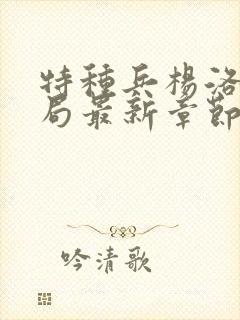 特種兵楊洛
局最新章節
吟清歌